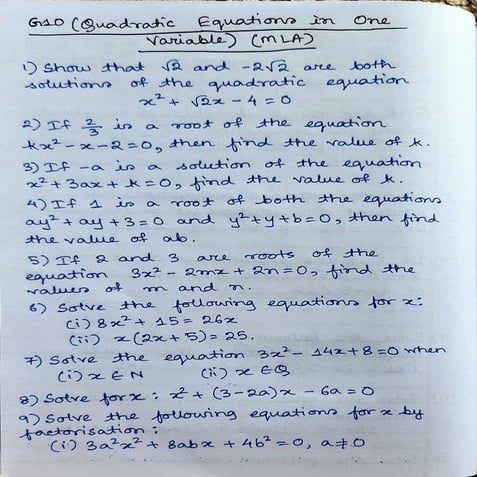 G10 (Quadratic Equations in One
Variable) (MLA)
1) Show that √2 and -2√2 are both
solutions of the quadratic equation
x² + √2x - 4 = 0
2) If 2/3 is a root of the equation
kx² - x - 2 = 0, then find the value of k.
3) If -a is a solution of the equation
x² + 3ax + k = 0, find the value of k.
4) If 1 is a root of both the equations
ay² + ay + 3 = 0 and y² + y + b = 0, then find
the value of ab.
5) If 2 and 3 are roots of the
equation 3x² - 2mx + 2n = 0, find the
values of m and n.
6) Solve the following equations for x:
(i) 8x² + 15 = 26x
(ii) x(2x + 5) = 25.
7) Solve the equation 3x² - 14x + 8 = 0 when
(i) x ∈ N (ii) x ∈ Q
8) Solve for x : x² + (3-2a)x - 6a = 0
9) Solve the following equations for x by
factorisation :
(i) 3a²x² + 8abx + 4b² = 0, a ≠ 0